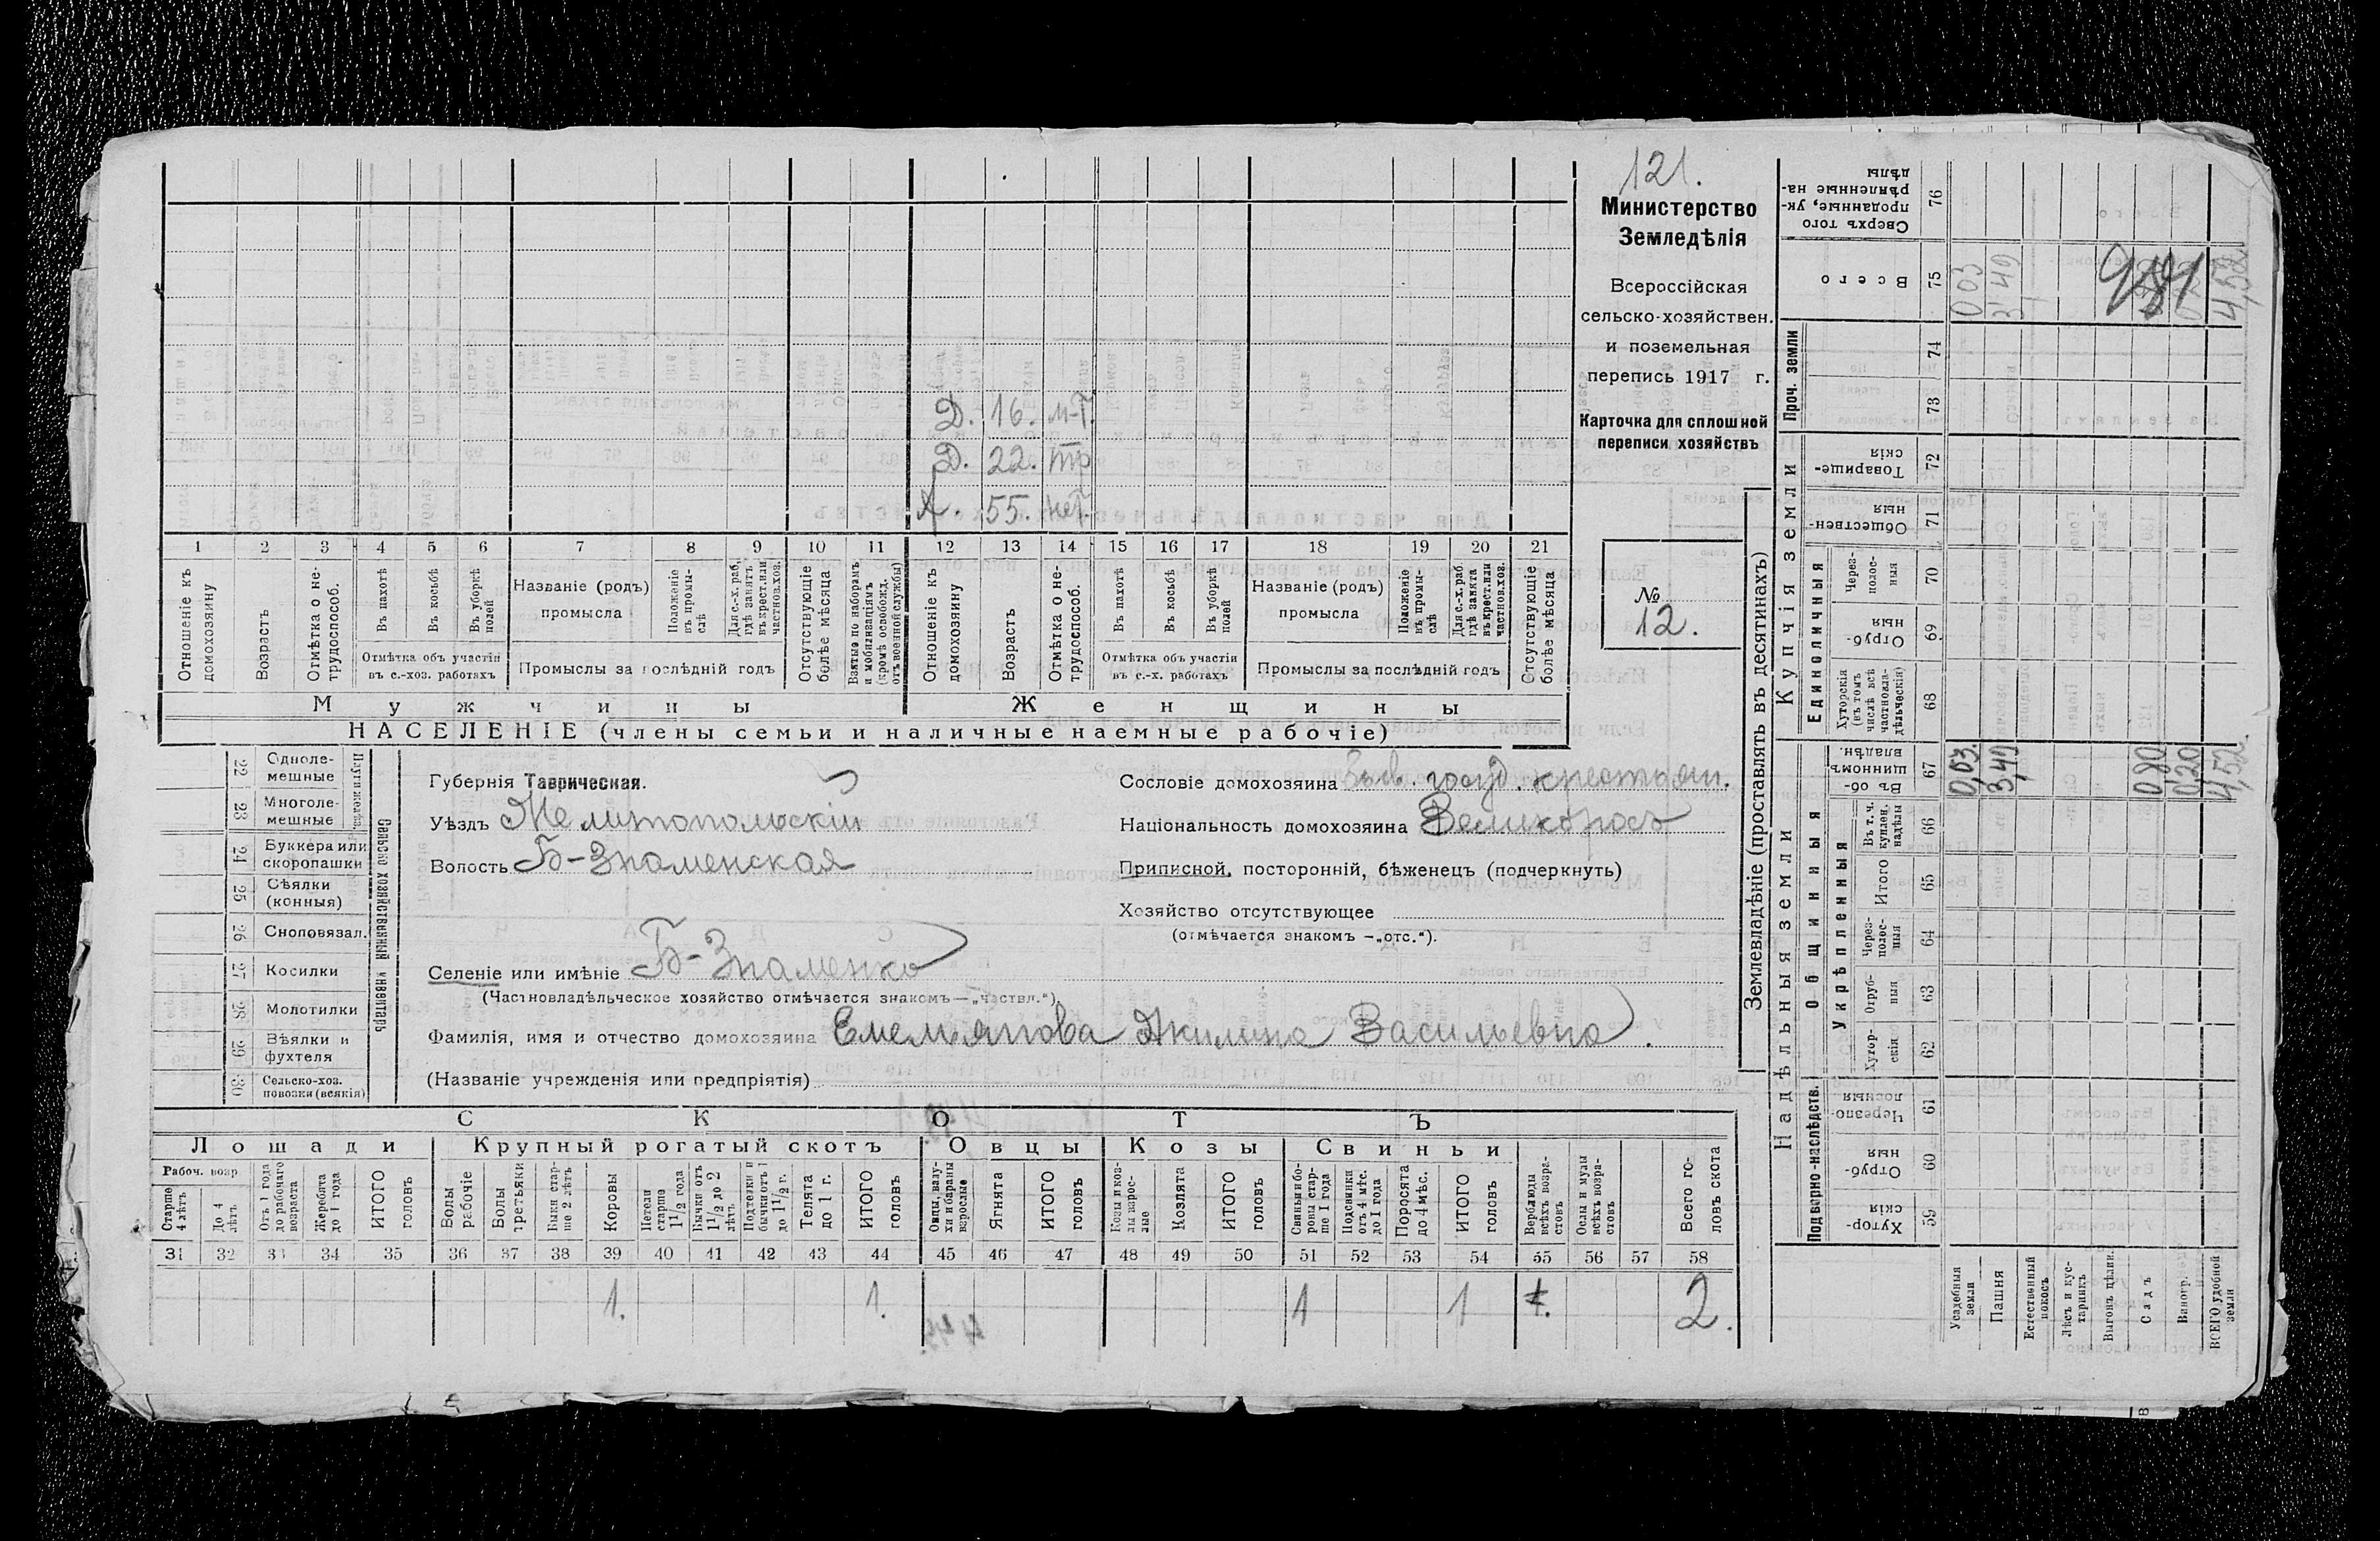 121.
Министерство
Земледѣлія
Всероссійская
сельско-хозяйствен.
и поземельная
перепись 1917 г.
Карточка для сплошной
переписи хозяйствъ
№
12.
Д. 16. н-т.
Д. 22. тр
Х. 55. нет.
1 2 3 4 5 6 7 8 9 10 11 12 13 14 15 16 17 18 19 20 21
Отношеніе къ домохозяину
Возрастъ
Отмѣтка о не-трудоспособ.
Въ пахотѣ
Въ косьбѣ
Въ уборкѣ полей
Отмѣтка объ участіи въ с.-хоз. работахъ
Названіе (родъ) промысла
Положеніе въ промы-слѣ
Для с.-х. раб. гдѣ занятъ въ крест. или частнов. хоз.
Промыслы за послѣдній годъ
Отсутствующіе болѣе мѣсяца
Взятые по наборамъ и мобилизаціямъ (кромѣ освобожд. отъ военной службы)
Отношеніе къ домохозяину
Возрастъ
Отмѣтка о не-трудоспособ.
Въ пахотѣ
Въ косьбѣ
Въ уборкѣ полей
Отмѣтка объ участіи въ с.-х. работахъ
Названіе (родъ) промысла
Положеніе въ промы-слѣ
Для с.-х. раб. гдѣ занята въ крест. или частнов. хоз.
Промыслы за послѣдній годъ
Отсутствующіе болѣе мѣсяца
Мужчины Женщины
НАСЕЛЕНІЕ (члены семьи и наличные наемные рабочіе)
22 Одноле-мешные
23 Многоле-мешные
24 Буккера или скоропашки
25 Сѣялки (конныя)
26 Сноповязал.
27 Косилки
28 Молотилки
29 Вѣялки и фухтеля
30 Сельско-хоз. повозки (всякія)
Сельско хозяйственный инвентарь
Губернія Таврическая.
Уѣздъ Мелитопольскій
Волость Б-Знаменская
Селеніе или имѣніе Б-Знаменка
(Частновладѣльческое хозяйство отмѣчается знакомъ—„частвл.“).
Фамилія, имя и отчество домохозяина Емельянова Акилина Васильевна.
(Названіе учрежденія или предпріятія)
Сословіе домохозяина госуд. крестьян.
Національность домохозяина Великоросъ
Приписной, посторонній, бѣженецъ (подчеркнуть)
Хозяйство отсутствующее
(отмѣчается знакомъ —„отс.“).
СКОТЪ
Лошади Крупный рогатый скотъ Овцы Козы Свиньи
Рабоч. возр
Старше 4 лѣтъ
До 4 лѣтъ
Отъ 1 года до рабочаго возраста
Жеребята до 1 года
ИТОГО головъ
Волы рабочіе
Волы третьяки
Быки стар-ше 2 лѣтъ
Коровы
Нетели старше 1 1/2 года
Бычки отъ 1 1/2 до 2 лѣтъ
Подтелки и бычки отъ 1 до 1 1/2 г.
Телята до 1 г.
ИТОГО головъ
Овцы, валу-хи и бараны взрослые
Ягнята
ИТОГО головъ
Козы и коз-лы взрос-лые
Козлята
ИТОГО головъ
Свиньи и бо-ровы стар-ше 1 года
Подсвинки отъ 4 мѣс. до 1 года
Поросята до 4 мѣс.
ИТОГО головъ
Верблюды всѣхъ возра-стовъ
Ослы и мулы всѣхъ возра-стовъ
Всего го-ловъ скота
31 32 33 34 35 36 37 38 39 40 41 42 43 44 45 46 47 48 49 50 51 52 53 54 55 56 57 58
1. 1. 1 1 2.
Землевладѣніе (проставлять въ десятинахъ)
Надѣльныя земли Купчія земли Проч. земли
Подворно-наслѣдств. Общинныя Единоличныя
Укрѣпленныя
Хутор-скія 59
Отруб-ныя 60
Черезпо-лосныя 61
Хутор-скія 62
Отруб-ныя 63
Через-полос-ныя 64
Итого 65
Въ т. ч. куплен. надѣлы 66
Въ об-щинномъ владѣн. 67
Хуторскія (въ томъ числѣ всѣ частновла-дѣльческія) 68
Отруб-ныя 69
Через-полос-ныя 70
Обществен-ныя 71
Товарище-скія 72
73
74
Всего 75
Сверхъ того проданные, ук-рѣпленные на-дѣлы 76
Усадебныя земли 0,03. 0 03
Пашня 3,49 3,49
Естественный покосъ
Лѣсъ и кус-таринкъ
Выгонъ цѣлин.
Садъ 0,80
Виногр. 0,20
ВСЕГО удобной земли 4,52. 4,52